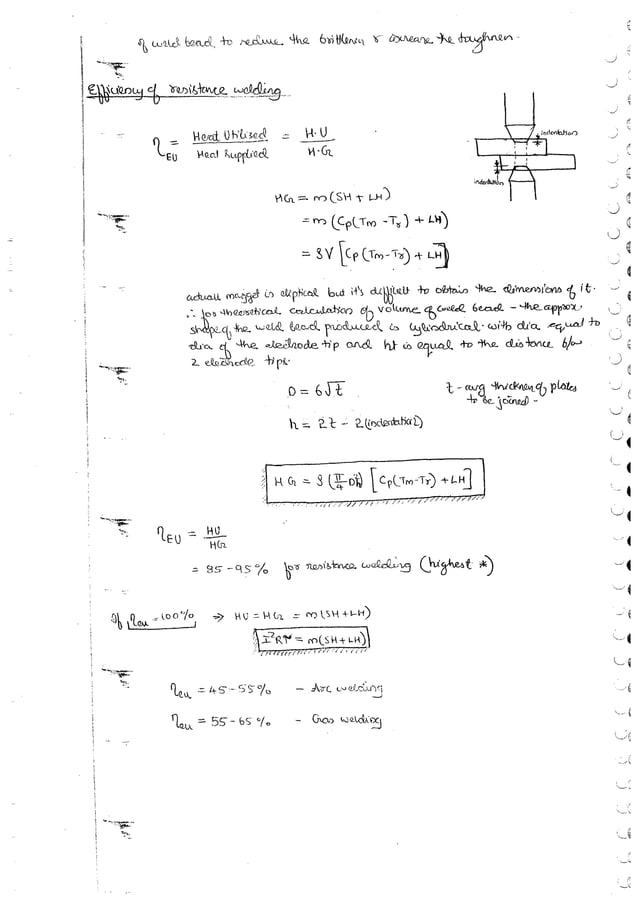 of weld bead, to reduce the brittleness & increase the toughness.
Efficiency of resistance welding
ηEU = Heat Utilised / Heat Supplied = H.U / H.G
indentation
indentation
HG = m(SH + LH)
= m (Cp(Tm - Tr) + LH)
= ρV [Cp (Tm-Tr) + LH]
actuall nugget is eliptical but it's difficult to obtain the dimensions of it.
∴ for theoretical calculation of volume of weld bead - the approx.
shape of the weld bead produced is cylindrical with dia equal to
dia of the electrode tip and ht is equal to the distance b/w
2 electrode tips.
D = 6√t t - avg thickness of plates
to be joined -
h = 2t - 2(indentation)
HG = ρ (π/4 D²h) [Cp(Tm-Tr) + LH]
ηEU = HU / HG
= 85-95% for resistance welding (highest *)
If ηeu = 100% ⇒ HU = HG = m(SH+LH)
I²Rτ = m(SH+LH)
ηeu = 45-55% - Arc welding
ηeu = 55-65% - Gas welding